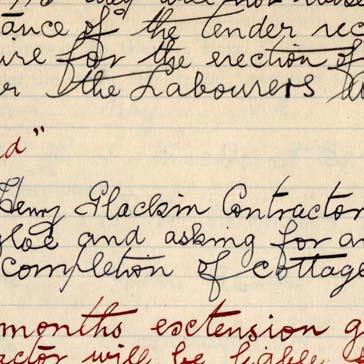 they will not
tance of the tender rec
ure for the erection of
er the Labourers
d"
Henry Glackin Contractor
gloe and asking for an
completion of cottage
months extension g
actor will be liable